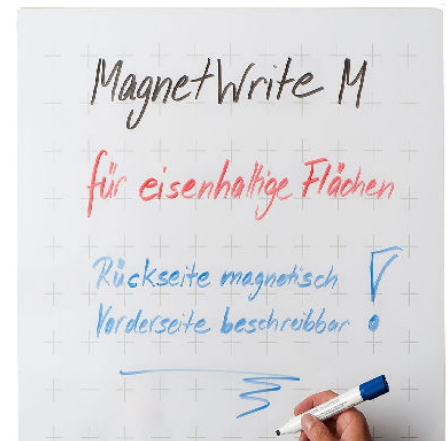 MagnetWrite M
für eisenhaltige Flächen
Rückseite magnetisch
Vorderseite beschreibbar !